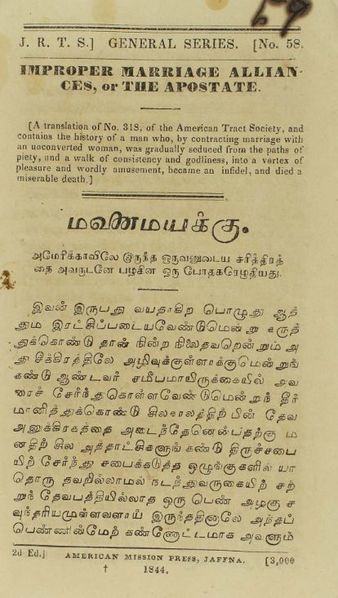 59
J. R. T. S.] GENERAL SERIES. [No. 58.
IMPROPER MARRIAGE ALLIAN-
CES, or THE APOSTATE.
[A translation of No. 318, of the American Tract Society, and
contains the history of a man who, by contracting marriage with
an unconverted woman, was gradually seduced from the paths of
piety, and a walk of consistency and godliness, into a vortex of
pleasure and wordly amusement, became an infidel, and died a
miserable death.]
மவணமயக்கு.
அமேரிக்காவிலே இருந்த ஒருவனுடைய சரித்திரத்
தை அவருடனே பழகின ஒரு போதகரெழுதியது.
இவன் இருபது வயதாகிற பொழுது ஆத்
தும இரட்சிப்படையவேண்டுமென்று கருத்
துக்கொண்டு தான் நின்ற நிலைதவறென்றும் அ
து சீக்கிரத்திலே அழிவுக்குள்ளாக்குமென்றுங்
கண்டு ஆண்டவர் சமீபமாயிருக்கையில் அவ
ரைச் சேர்ந்துகொள்ளவேண்டுமென்றுந் தீர்
மானித்துக்கொண்டு சிலகாலத்திற் பின் தேவ
அனுக்கிரகத்தை அடைந்தேனென்பதற்கு ம
னதிற் சில அத்தாட்சிகளுங் கண்டு திருச்சபை
யிற் சேர்ந்து சபைக்கடுத்த ஒழுங்குகளில் யா
தொரு தவறில்லாமல் நடந்துவருகையிற் சற்
றுந் தேவபத்தியில்லாத ஒரு பெண் அழகு ச
வுந்தரியமுள்ளவளாய் இருந்ததினாலே அந்தப்
பெண்ணின்மேற் கண்ணோட்டமாக அவளும்
2d Ed.] AMERICAN MISSION PRESS, JAFFNA. [3,000
† 1844.